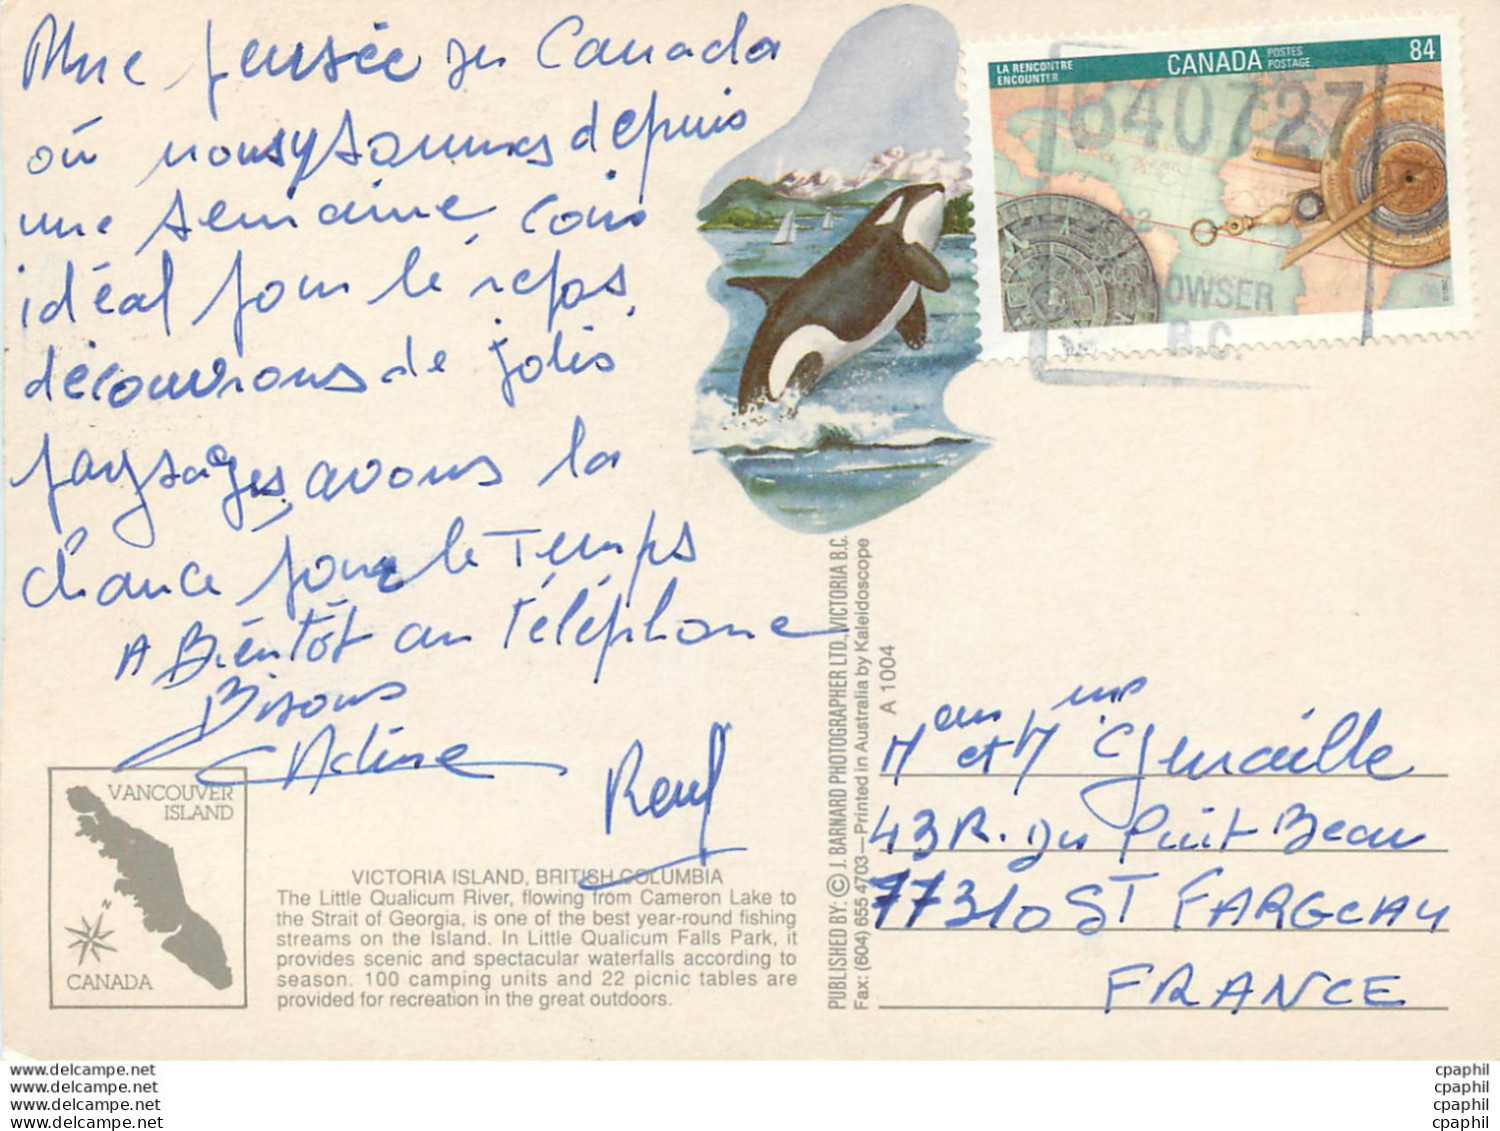 Une pensée du Canada
où nous y sommes depuis
une semaine, coin
idéal pour le repos,
découvrons de jolis
paysages, avons la
chance pour le Temps
A Bientôt au Téléphone
Bisous
Adine
René
LA RENCONTRE
ENCOUNTER
CANADA
POSTES
POSTAGE
84
640727
OWSER
B.C.
VANCOUVER
ISLAND
N
CANADA
VICTORIA ISLAND, BRITISH COLUMBIA
The Little Qualicum River, flowing from Cameron Lake to
the Strait of Georgia, is one of the best year-round fishing
streams on the Island. In Little Qualicum Falls Park, it
provides scenic and spectacular waterfalls according to
season. 100 camping units and 22 picnic tables are
provided for recreation in the great outdoors.
PUBLISHED BY: © J. BARNARD PHOTOGRAPHER LTD., VICTORIA B.C.
Fax: (604) 655 4703—Printed in Australia by Kaleidoscope
A 1004
et M
43 R. du Puit Beau
77310 ST FARGEAU
FRANCE
www.delcampe.net
www.delcampe.net
www.delcampe.net
www.delcampe.net
cpaphil
cpaphil
cpaphil
cpaphil